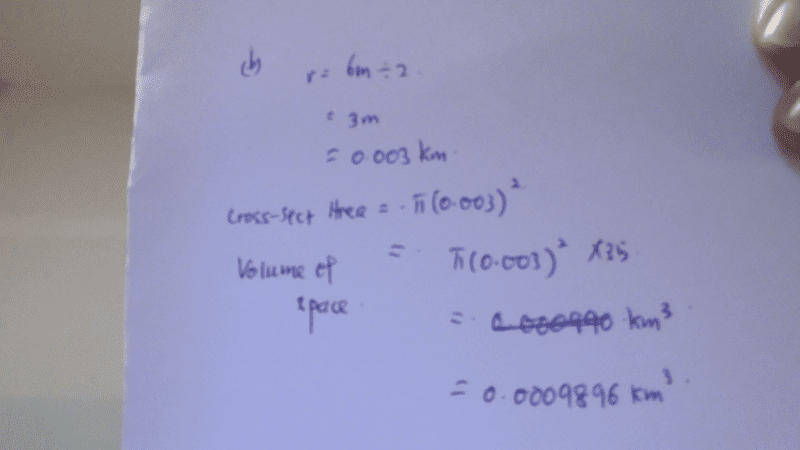 (b) r = 6m ÷ 2.
= 3m
= 0.003 km
Cross-sect Area = π(0.003)²
Volume of space = π(0.003)² × 35
= km³
= 0.0009896 km³